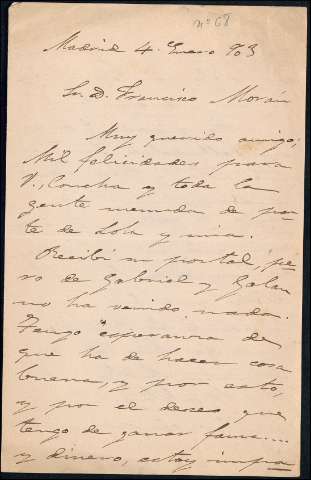 nº 68
Madrid 4 Enero 903
Sr. D. Francisco Morán
Muy querido amigo;
Mil felicidades para
V., Concha y toda la
gente menuda de par-
te de Lola y mia.
Recibí su postal, pe-
ro de Gabriel y Galan
no ha venido nada.
Tengo esperanza de
que ha de hacer cosa
buena, y por esto,
y por el deseo que
tengo de ganar fama....
y dinero, estoy impa